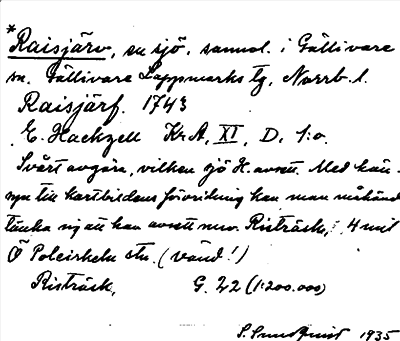 *Raisjärv, en sjö, sannol. i Gällivare
sn. Gällivare Lappmarks tg, Norrb. l.
Raisjärf. 1743
E. Hackzell Kr.A, XI, D, 1:o.
Svårt avgöra, vilken sjö H. avsett. Med hän-
syn till kartbildens förvridning kan man måhända
tänka sig att han avsett nuv. Risträsk, 4 mil
Ö Polcirkeln stn. (vänd!)
Risträsk, G. 22 (1:200.000)
S. Sundquist 1935